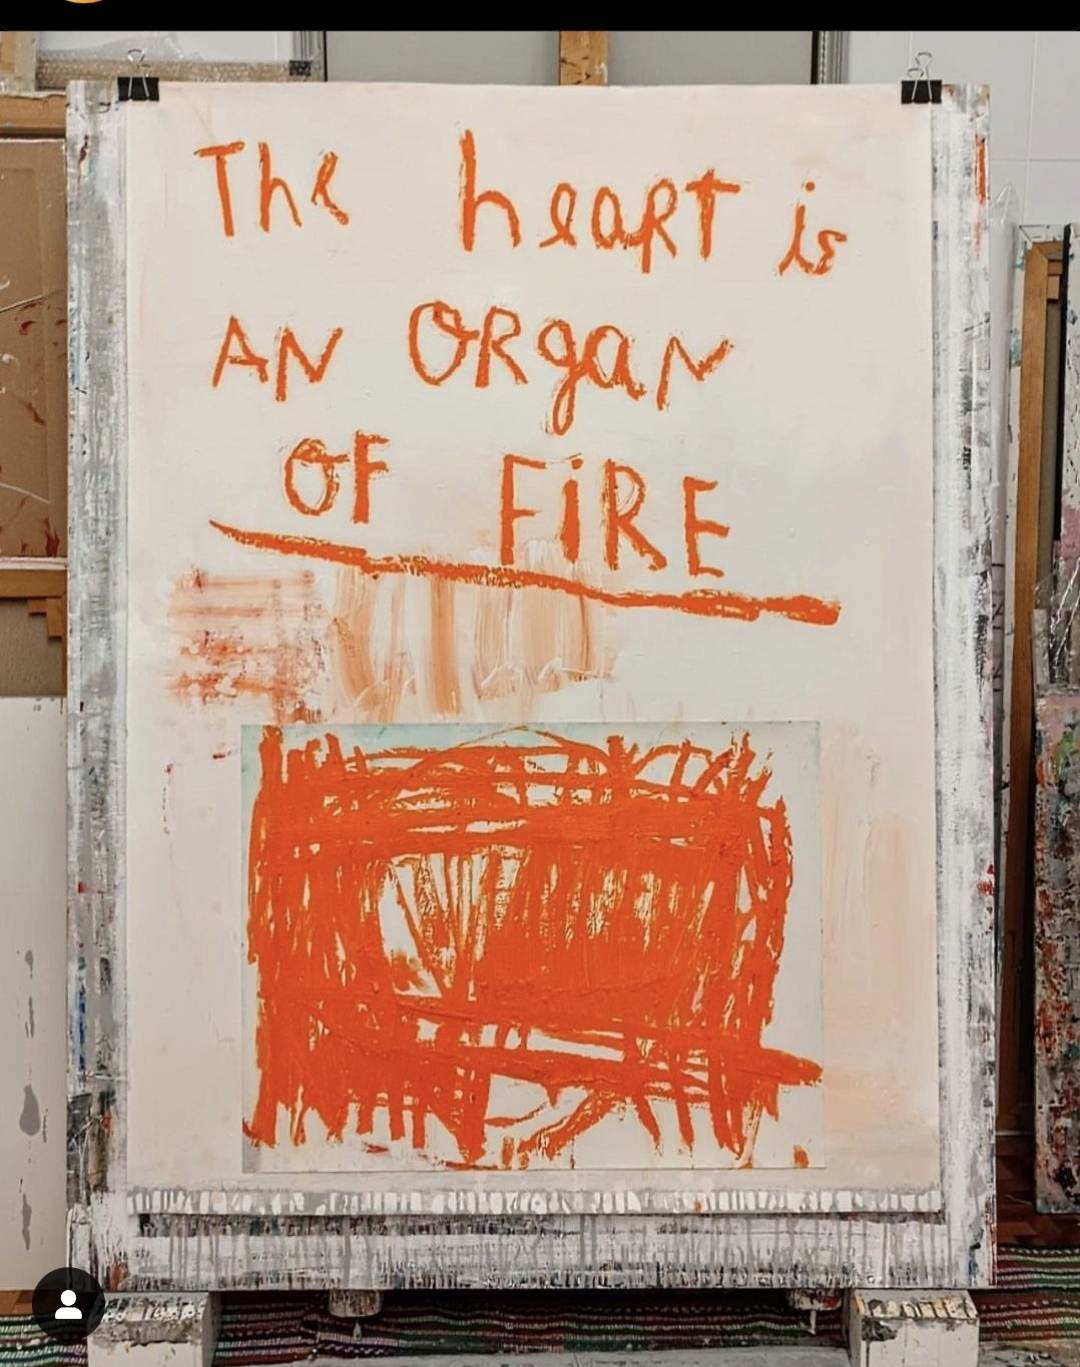 The heart is
AN ORgaN
OF FiRE